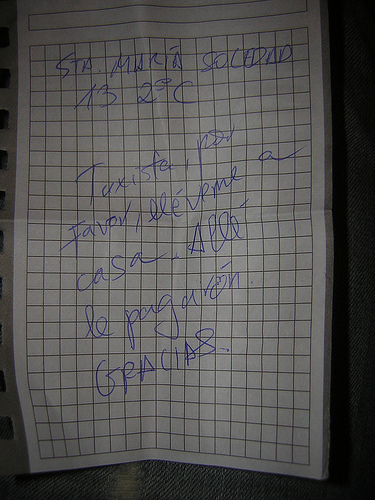 STA. MARÍA SOLEDAD
13 2º C
Taxista, por
favor, lléveme a
casa. Allí
le pagarán.
GRACIAS.